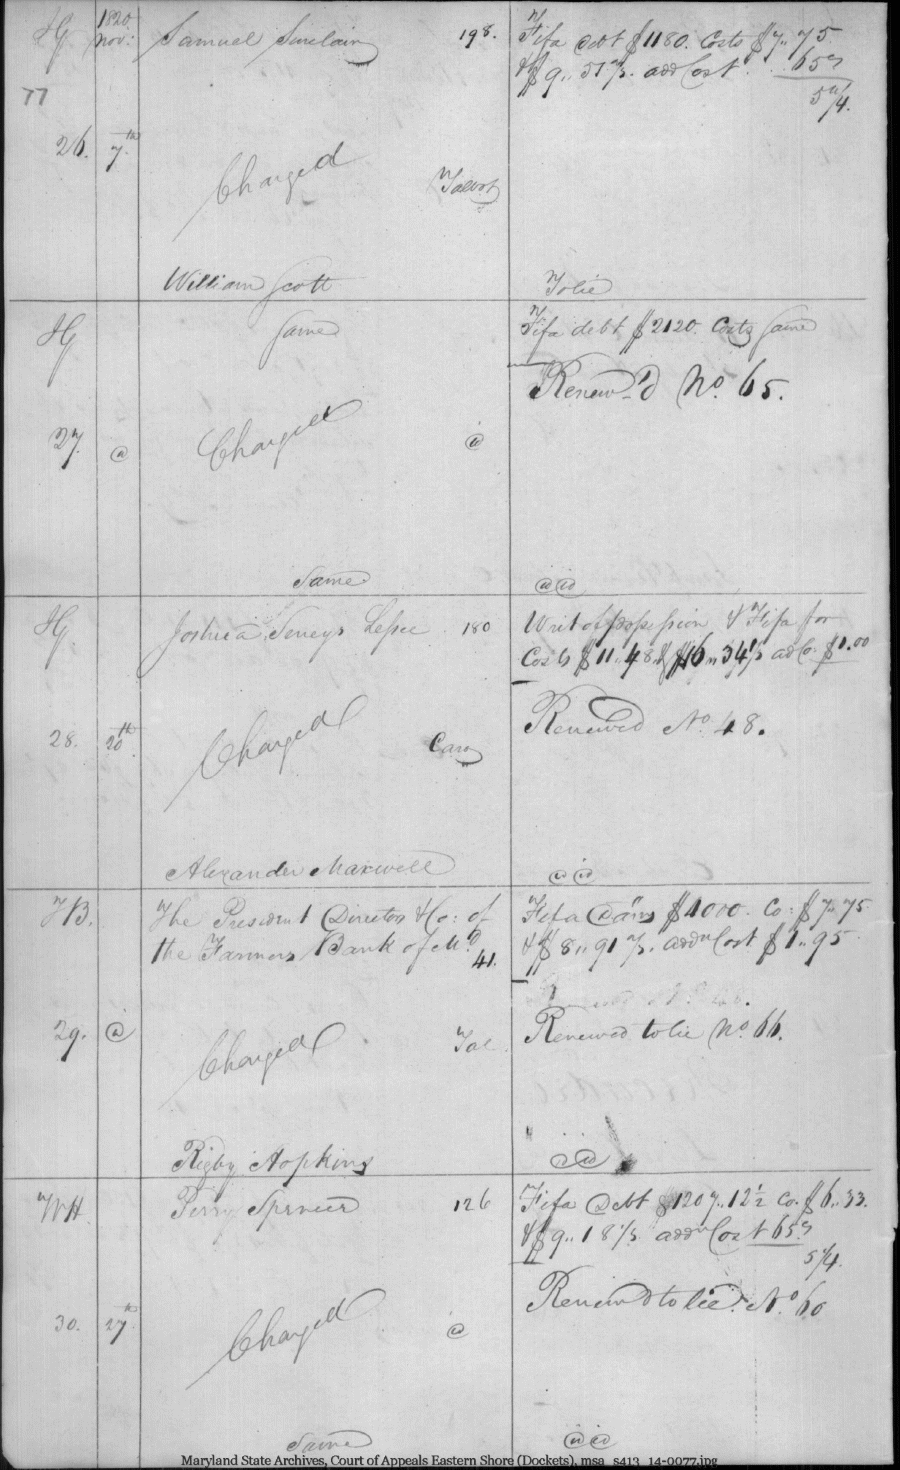 Hg 1820 Nov: Samuel Sinclair 198. Fifa debt $1180. Costs $7..75
& $9.. 57 ⅓. add Cost. 65⅔
77 5/4.
26. 7th Charged Talbot
William Scott Tolie
Hg Same Fifa debt $2120. Costs Same
Renew'd No. 65.
27. @ Charged @
Same @@
Hg Joshua Seneys Lessee 180 Writ of possession & Fifa for
Costs $11..48 & $16..34⅓ ad Co. $1.00
Renewed No. 48.
28. 20th Charged Caro
Alexander Maxwell @@
TB. The President Directors & Co: of Fifa Dam $4000. Co: $7..75
the Farmers Bank of Md. 41. & $8..91 ⅔. addn Cost $1..95
29. @ Charged Tal Renewed to lie No. 66.
Rigby Hopkins @@
WH Perry Spencer 126 Fifa Debt $1207..12½ Co. $6..33.
& $9..18⅓ addn Cost 65⅔
5/4.
Renewed to lie. No. 60
30. 27th Charged @
Same @@
Maryland State Archives, Court of Appeals Eastern Shore (Dockets), msa_s413_14-0077.jpg